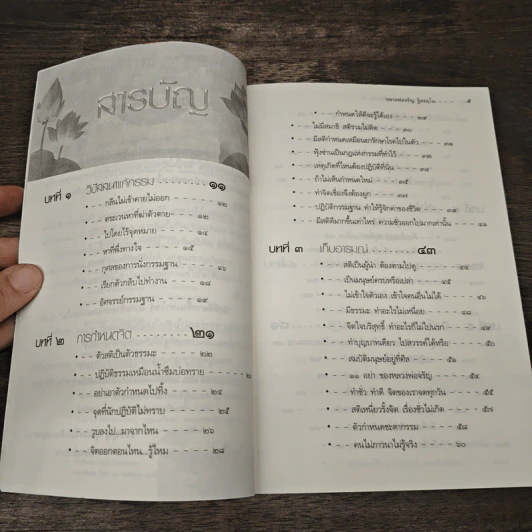 สารบัญ
บทที่ ๑ วิปัสสนาแก้กรรม ๑๑
• กลืนไม่เข้าคายไม่ออก ๑๒
• ตระเวนหาที่ฆ่าตัวตาย ๑๒
• ไปโดยไร้จุดหมาย ๑๔
• หาที่พึ่งทางใจ ๑๕
• กุศลของการนั่งกรรมฐาน ๑๖
• เรียกตัวกลับไปทำงาน ๑๘
• อัศจรรย์กรรมฐาน ๑๙
บทที่ ๒ การกำหนดจิต ๒๑
• ตัวสติเป็นตัวธรรมะ ๒๒
• ปฏิบัติธรรมเหมือนน้ำซึมบ่อทราย ๒๒
• อย่าเอาตัวกำหนดไปทิ้ง ๒๔
• จุดที่นักปฏิบัติไม่ทราบ ๒๕
• วูบลงไป...มาจากไหน ๒๖
• จิตออกตอนไหน...รู้ไหม ๒๘
หลวงพ่อจรัญ ฐิตธมฺโม ๕
• กำหนดให้ดีจะรู้ได้เอง ๓๑
• ไม่มีสมาธิ สติรวมไม่ติด
• มีสติกำหนดเหมือนยารักษาโรคไปในตัว
• ฟุ้งซ่านเป็นกฎแห่งกรรมที่ทำไว้
• เหตุเกิดที่ไหนต้องปฏิบัติที่นั่น
• ถ้าไม่เห็นกำหนดใหม่
• ทำจิตเรื่องจึงต้องผูก
• ปฏิบัติกรรมฐาน ทำให้รู้จักค่าของชีวิต
• มีสติดีมากขึ้นเท่าไหร่ ความชั่วออกไปมากเท่านั้น ๔๑
บทที่ ๓ เก็บอารมณ์ ๔๓
• สติเป็นผู้นำ ต้องตามไปดู ๔๔
• เป็นมนุษย์ครบหรือเปล่า ๔๕
• ไม่เข้าใจตัวเอง เข้าใจคนอื่นไม่ได้ ๔๖
• มีธรรมะ ทำอะไรไม่เหนื่อย ๔๘
• จิตใจบริสุทธิ์ ทำอะไรก็ไม่ไปนรก ๔๙
• ทำบุญบาทเดียว ไปสวรรค์ได้หรือ ๕๐
• สมบัติมนุษย์อยู่ที่ศีล ๕๑
• ๑๑ อย่า ของหลวงพ่อจรัญ ๕๔
• ทำชั่ว ทำดี จิตของเราจดทุกวัน ๕๕
• สติเหนี่ยวรั้งจิต เรื่องชั่วไม่เกิด ๕๗
• ตัวกำหนดชะตากรรม ๕๘
• คนไม่ภาวนาไม่รู้จริง ๖๐